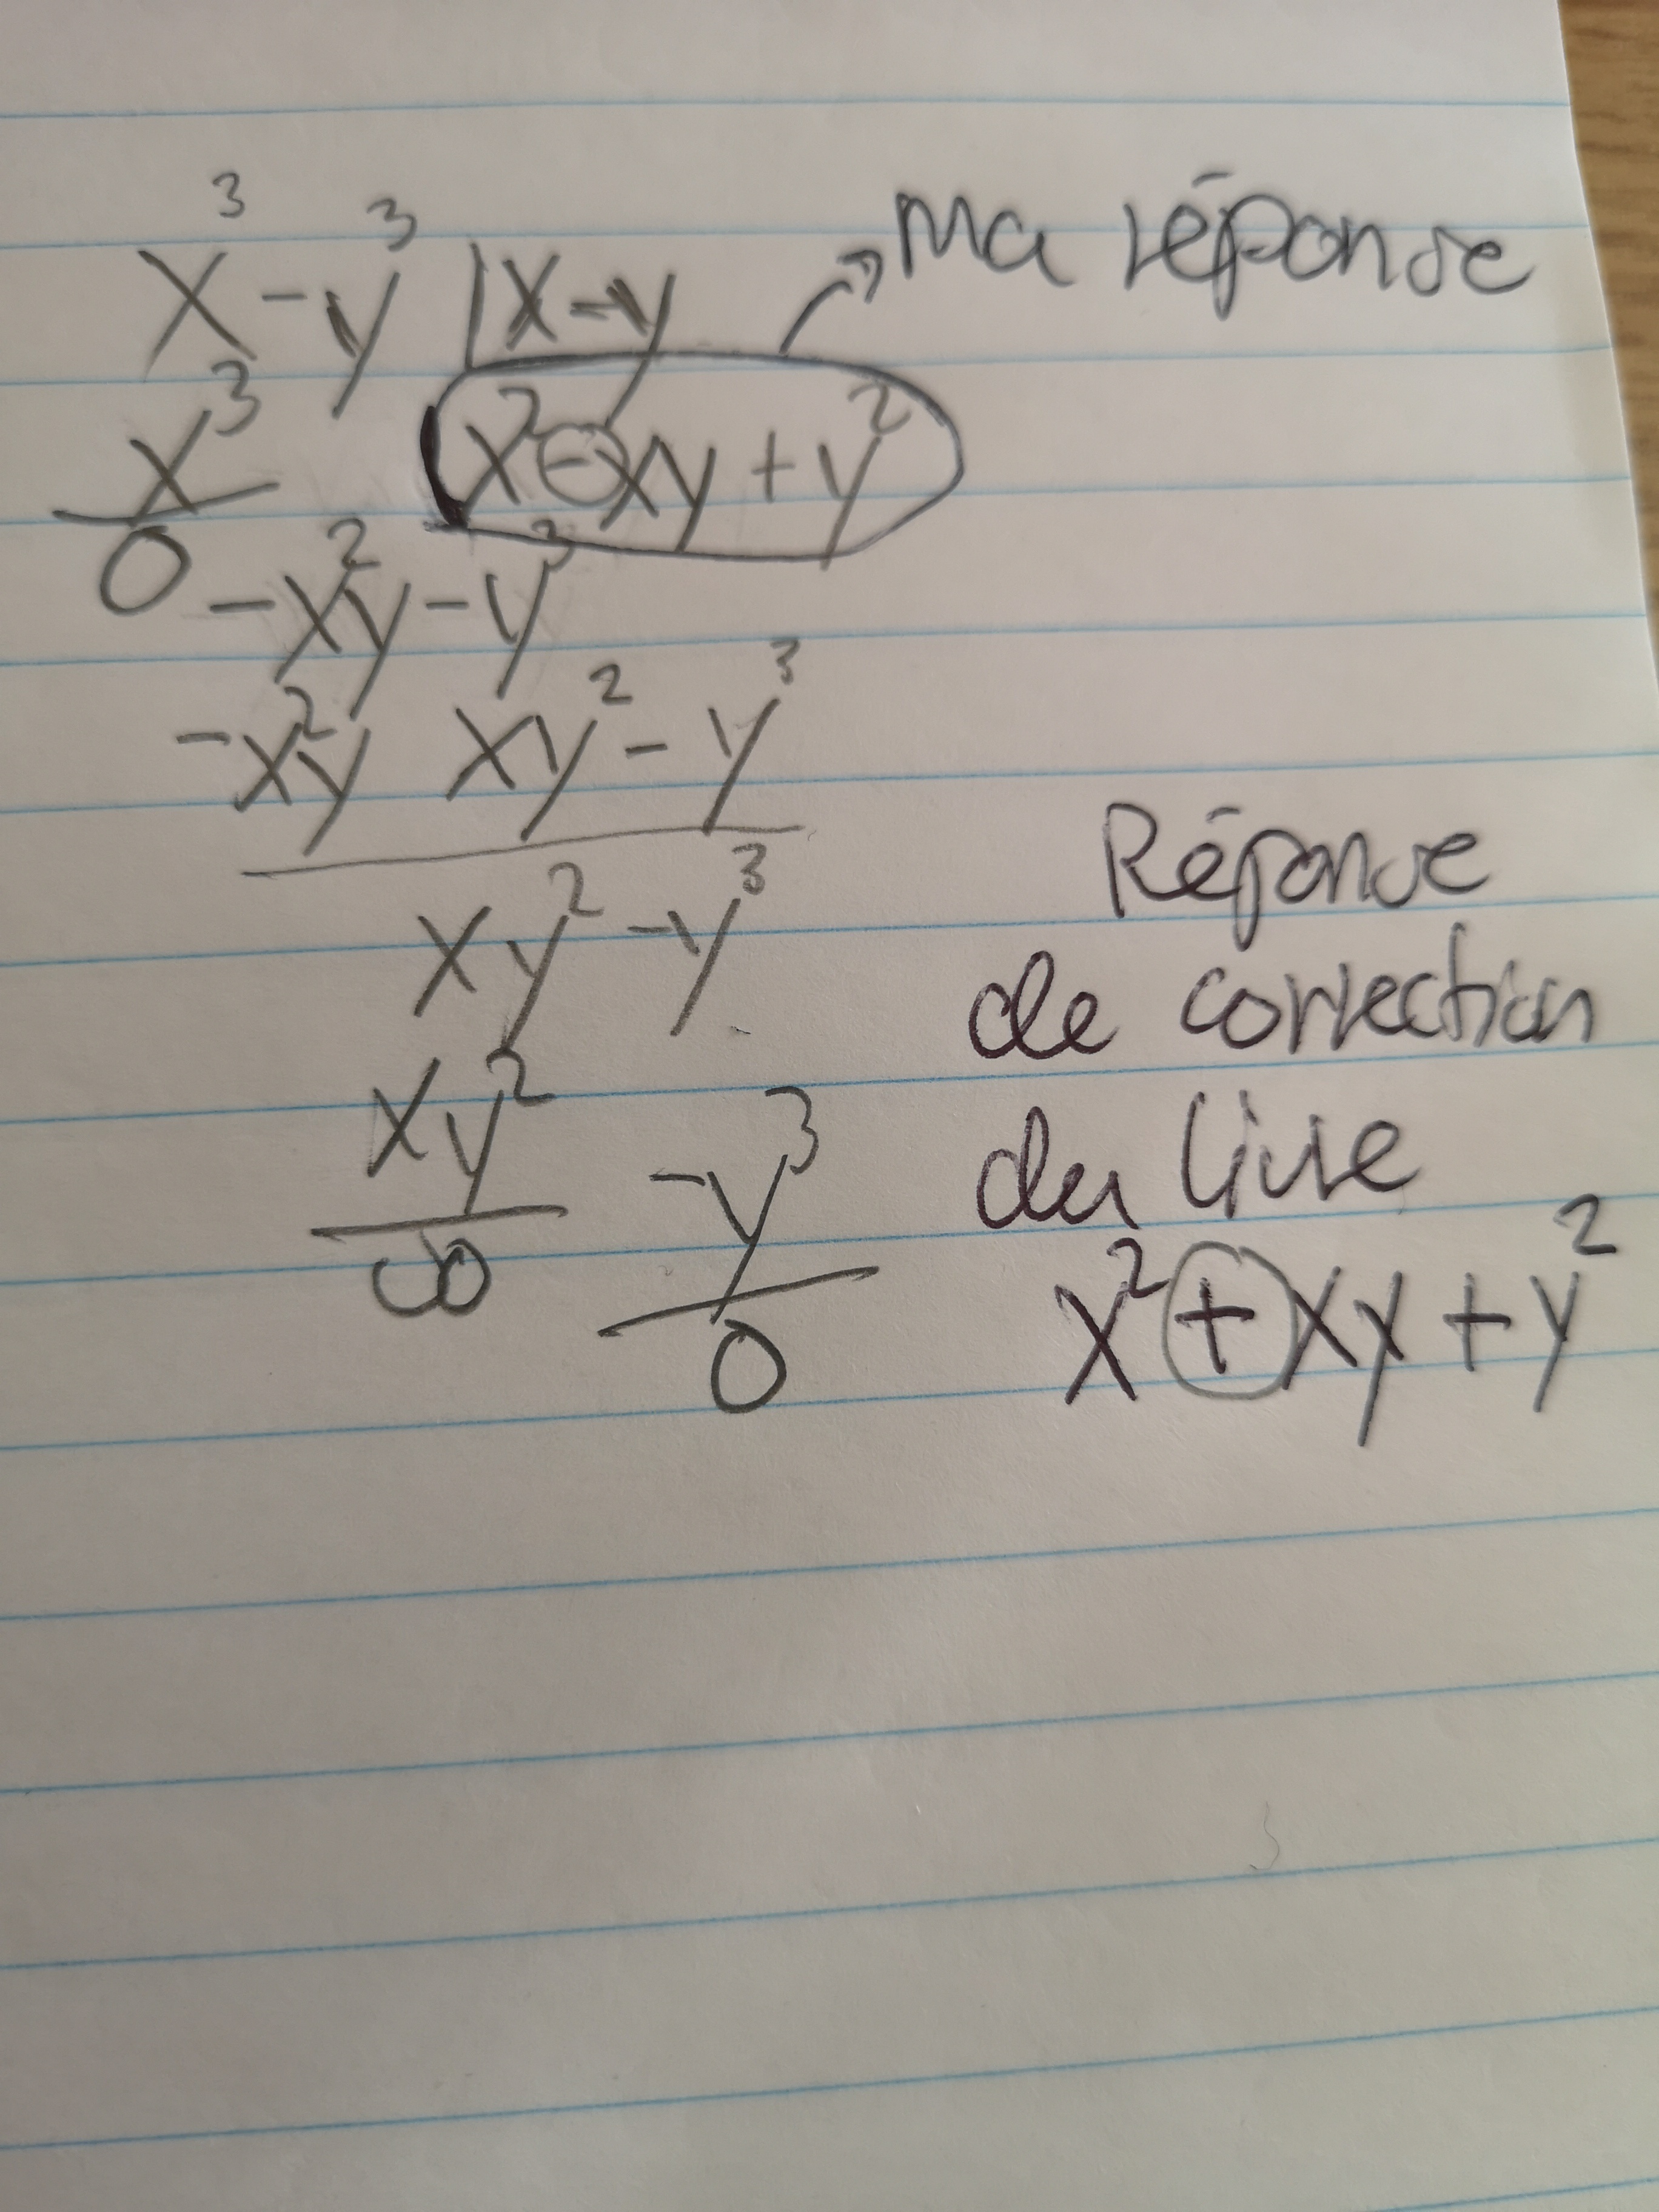 x³ - y³ | x - y → Ma réponse
x³ x² - xy + y²
0 - x²y - y³
- x²y xy² - y³
xy² - y³
xy² - y³
0 0
Réponse
de correction
du livre
x² + xy + y²